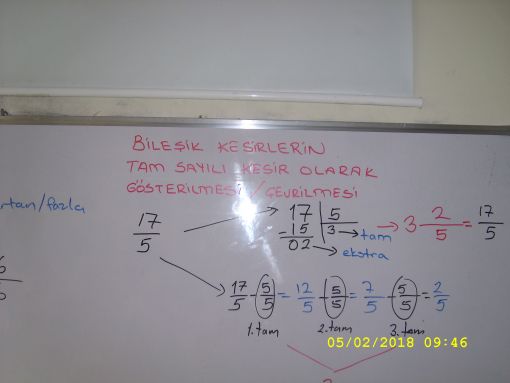 BİLEŞİK KESİRLERİN
TAM SAYILI KESİR OLARAK
GÖSTERİLMESİ / ÇEVRİLMESİ
artan/fazla
17/5
17 | 5
-15 | 3 → tam → 3 2/5 = 17/5
02 → ekstra
17/5 - 5/5 = 12/5 - 5/5 = 7/5 - 5/5 = 2/5
1. tam 2. tam 3. tam
05/02/2018 09:46